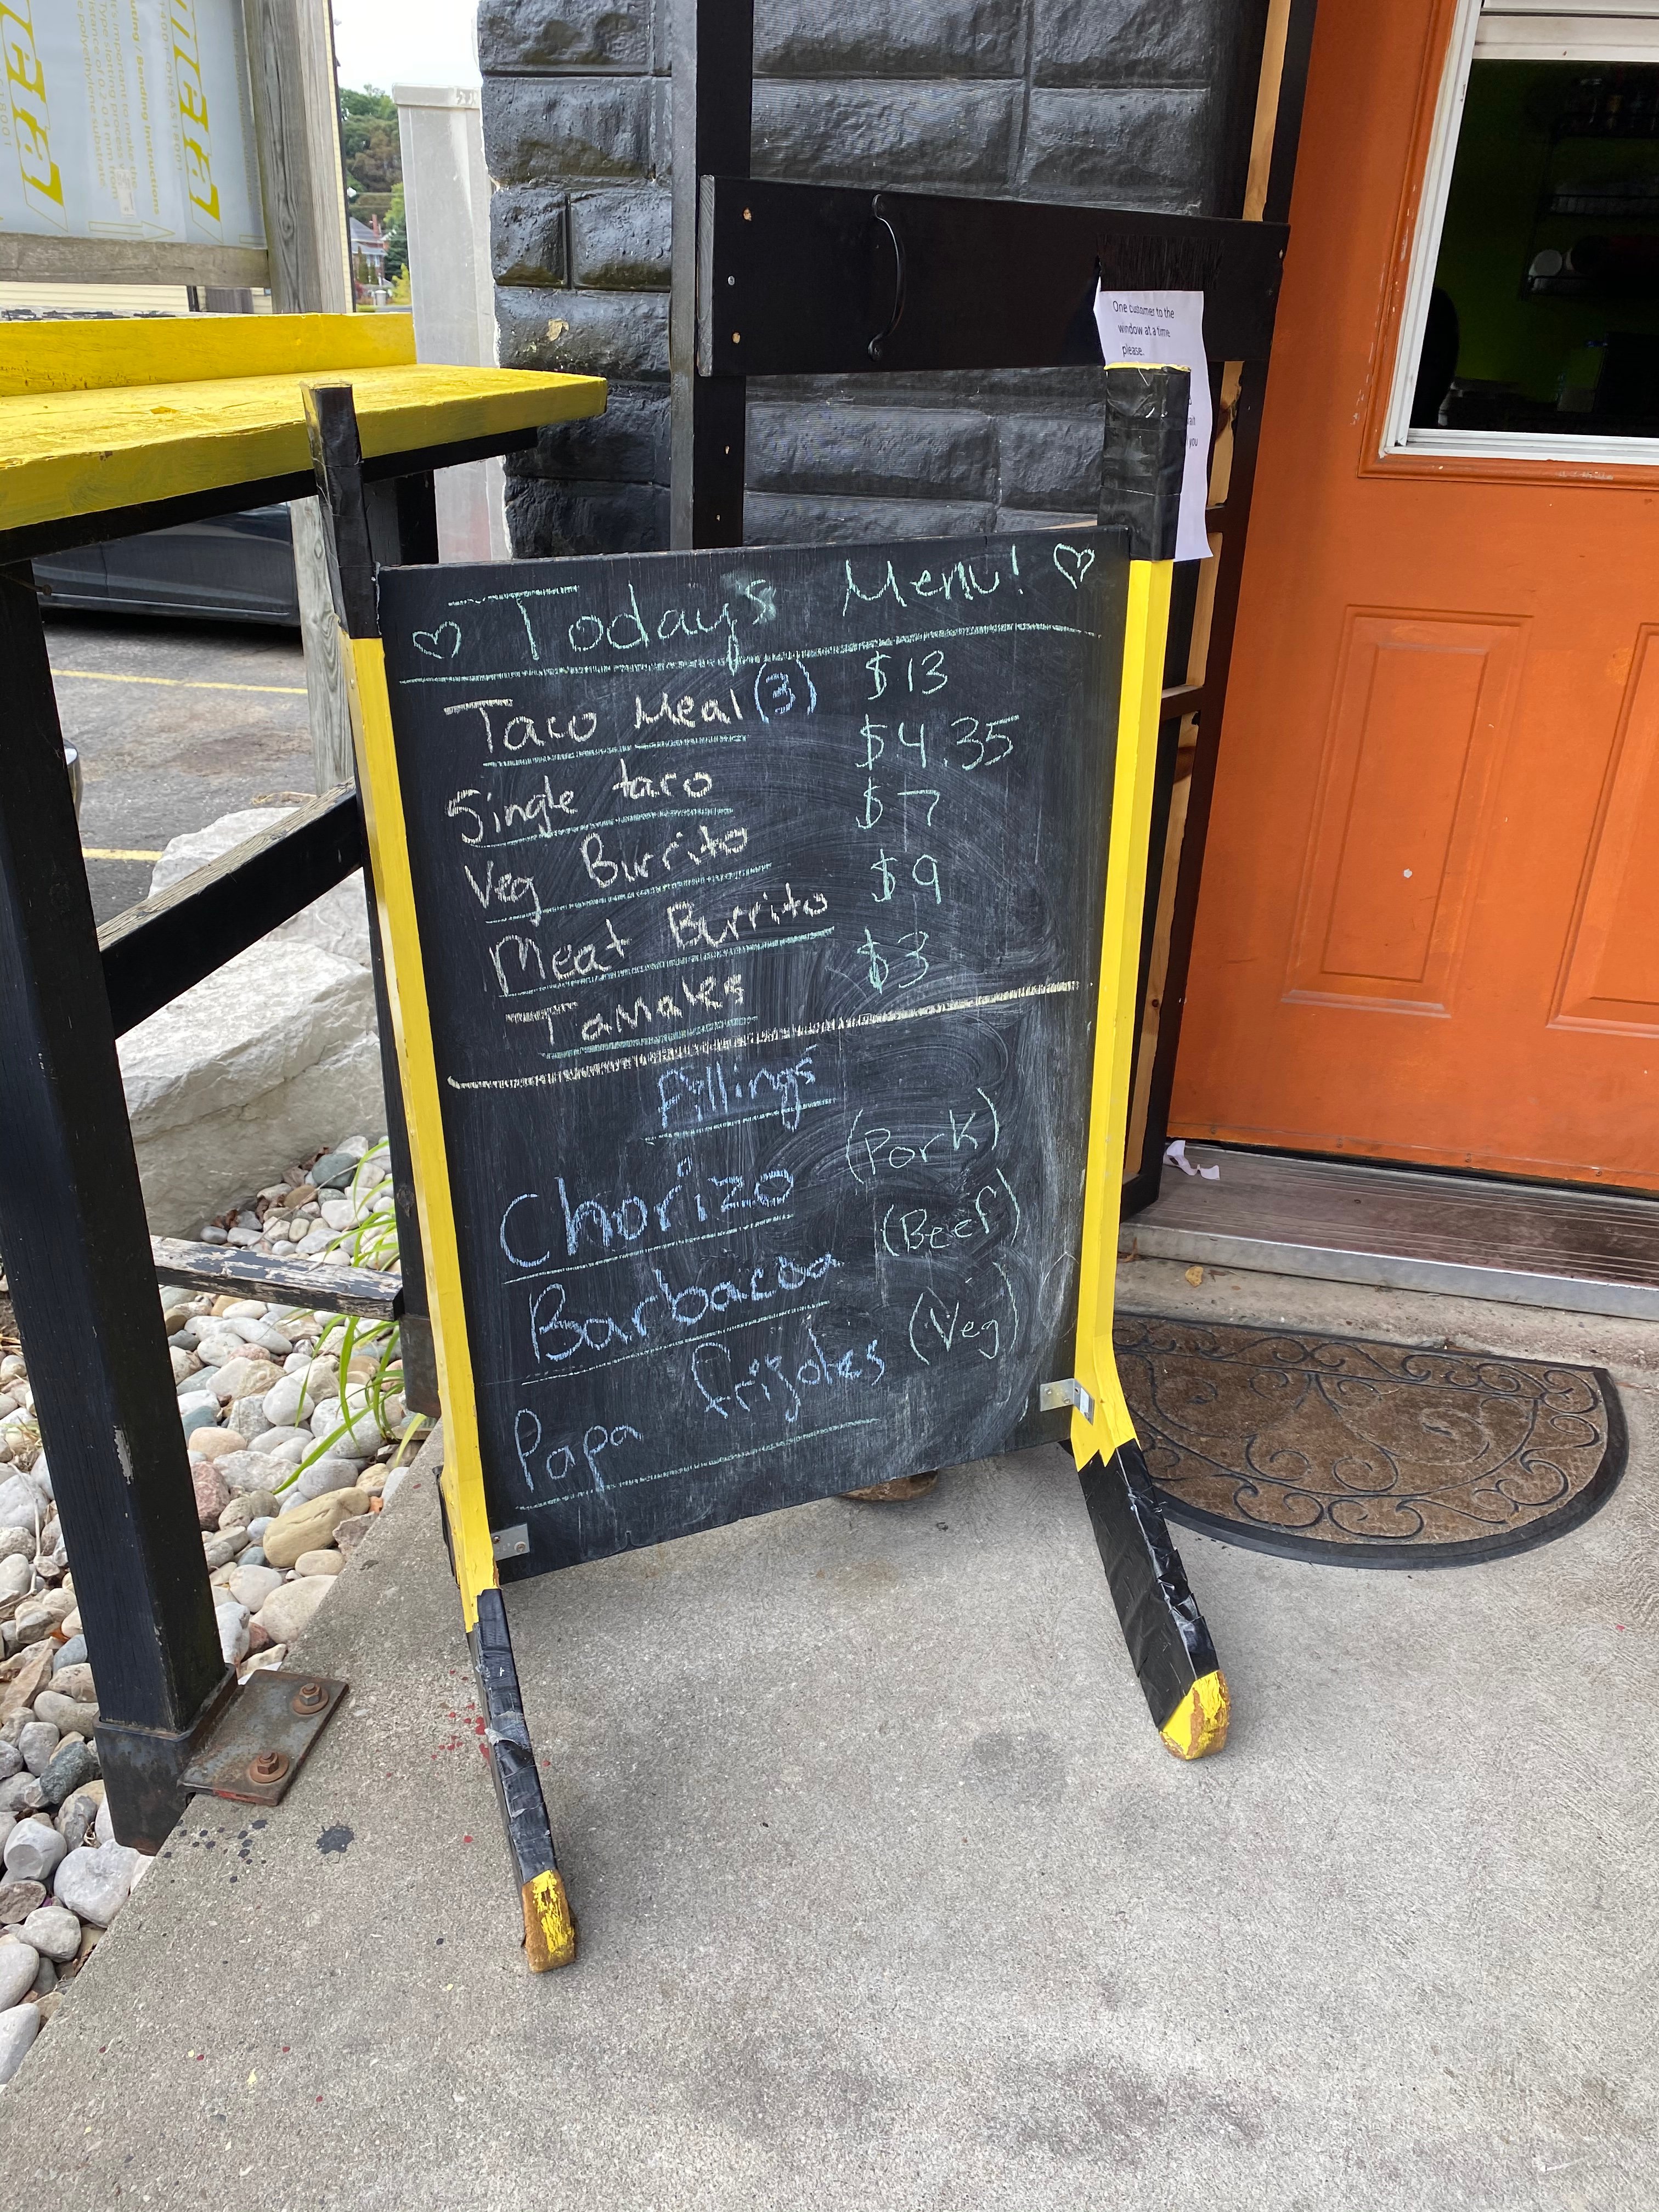 Today's Menu!
Taco Meal (3) $13
Single taco $4.35
Veg Burrito $7
Meat Burrito $9
TaMales $3
fillings
Chorizo (Pork)
Barbacoa (Beef)
Papa frijoles (Veg)
One customer to the
window at a time
please.
you